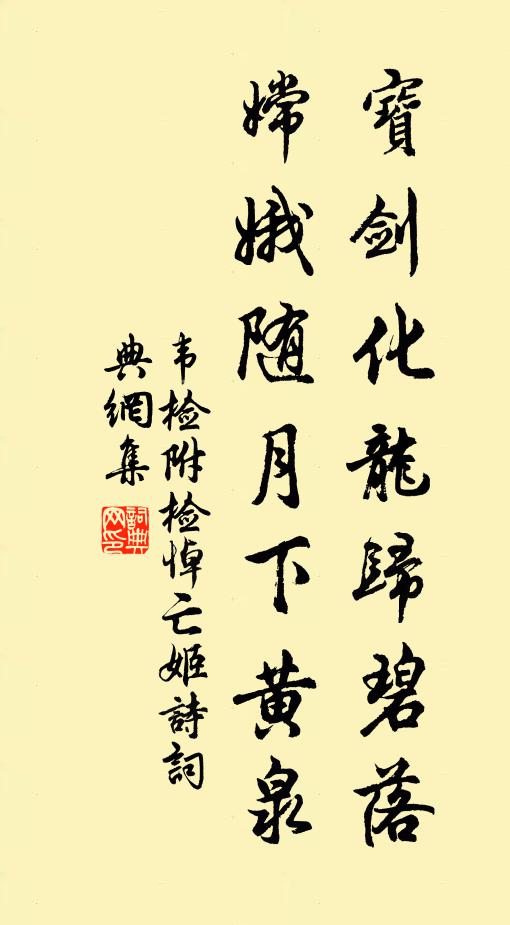 寶劍化龍歸碧落
嫦娥随月下黄泉
韦检附检悼亡姬詩詞
典網集
詞典網印